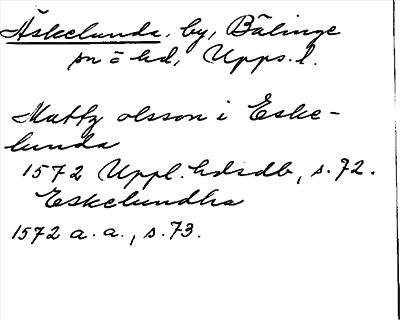 Äskelunda, by, Bälinge
sn o hd, Upps. l.
Matts olsson i Eske-
lunda
1572 Uppl. hdsdb, s. 72.
Eskelundha
1572 a. a., s. 73.